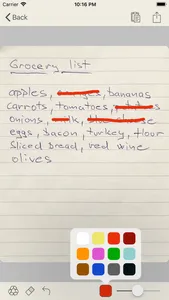 Carrier 10:16 PM
Back
Grocery list
apples, bananas
carrots, tomatoes,
onions,
eggs, bacon, turkey, flour
Sliced bread, red wine
olives